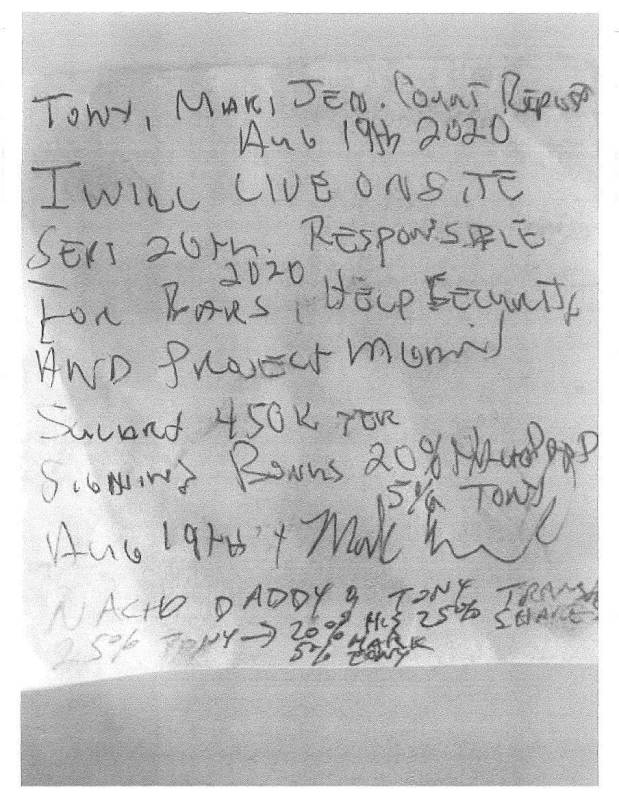 Tony, Mark, Jen. Court Report
Aug 19th 2020
I WILL LIVE ONSITE
SEPT 20th. RESPONSIBLE
2020
FOR BARS, HELP SECURITY
AND PROJECT
450K
SIGNING BONUS 20%
5% TONY
Aug 19th
NACHO DADDY TONY TRANS
25% TONY → 20% HIS 25% SHARES
5% MARK
TONY